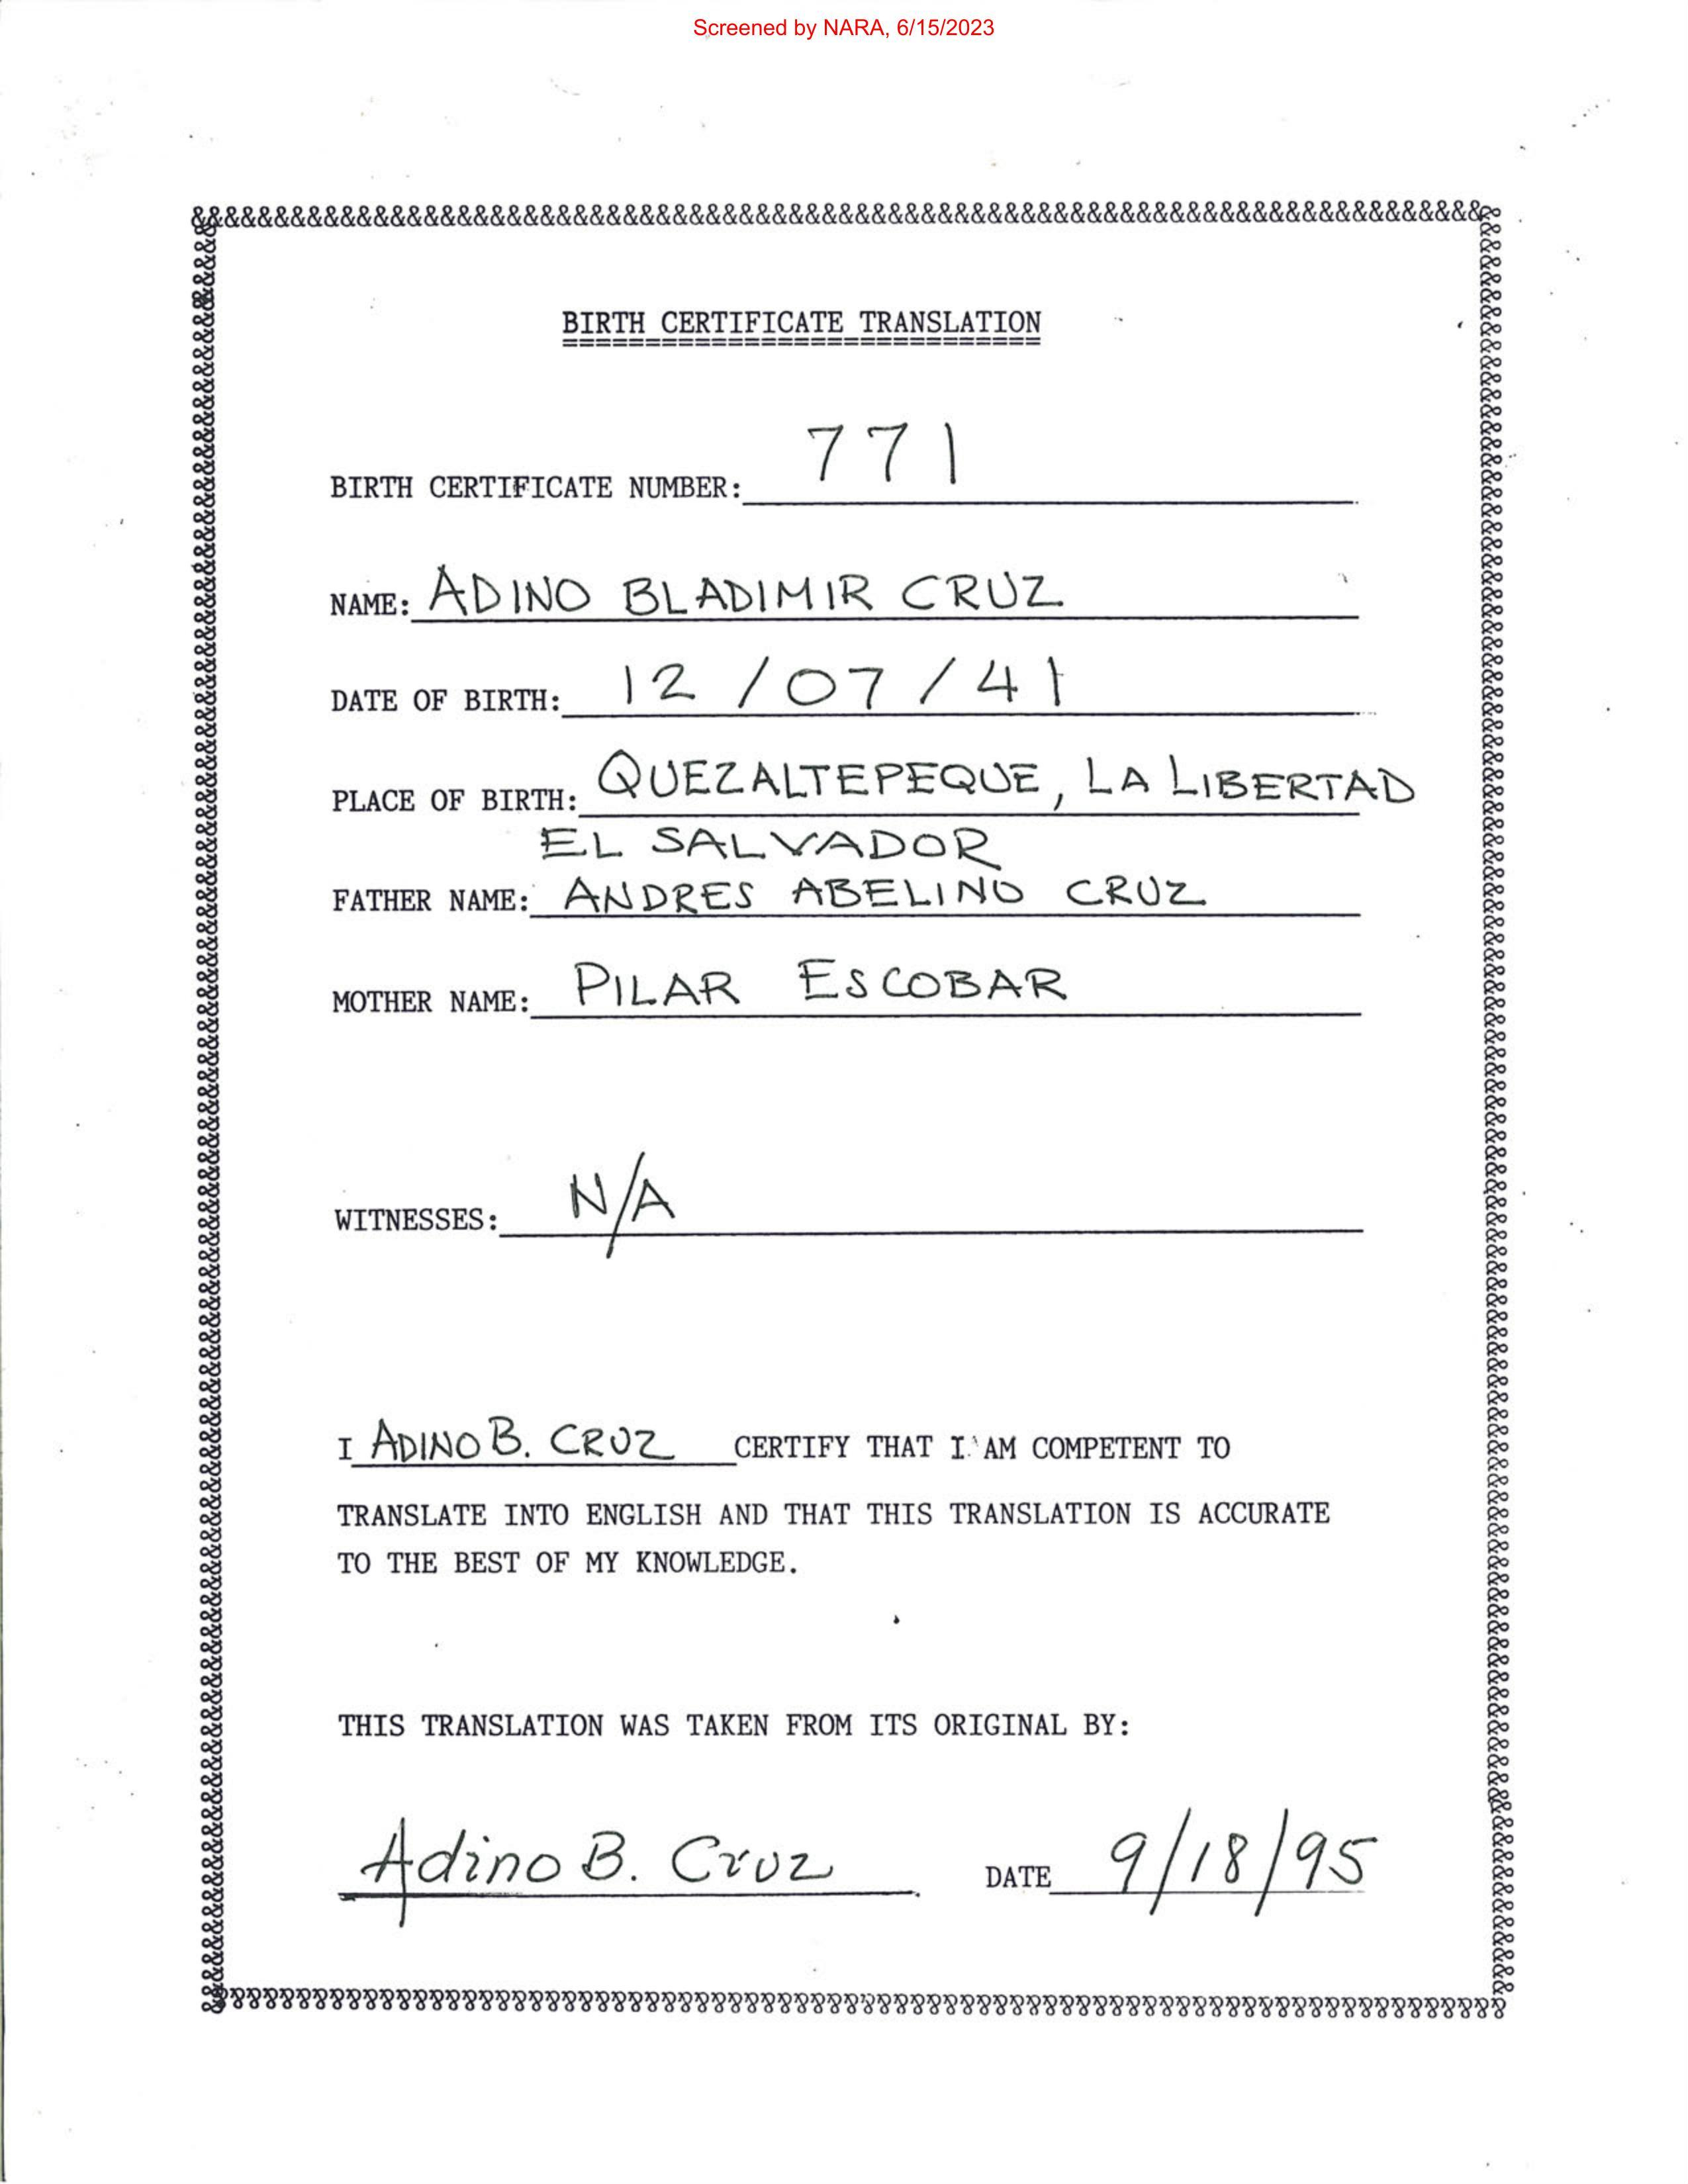 Screened by NARA, 6/15/2023
&&&&&&&&&&&&&&&&&&&&&&&&&&&&&&&&&&&&&&&&&&&&&&&&&&&&&&&&&&&&&&&&&&&&&&&&&&&&&&
BIRTH CERTIFICATE TRANSLATION
=============================
BIRTH CERTIFICATE NUMBER: 771
NAME: ADINO BLADIMIR CRUZ
DATE OF BIRTH: 12/07/41
PLACE OF BIRTH: QUEZALTEPEQUE, LA LIBERTAD
EL SALVADOR
FATHER NAME: ANDRES ABELINO CRUZ
MOTHER NAME: PILAR ESCOBAR
WITNESSES: N/A
I ADINO B. CRUZ CERTIFY THAT I AM COMPETENT TO
TRANSLATE INTO ENGLISH AND THAT THIS TRANSLATION IS ACCURATE
TO THE BEST OF MY KNOWLEDGE.
THIS TRANSLATION WAS TAKEN FROM ITS ORIGINAL BY:
Adino B. Cruz DATE 9/18/95